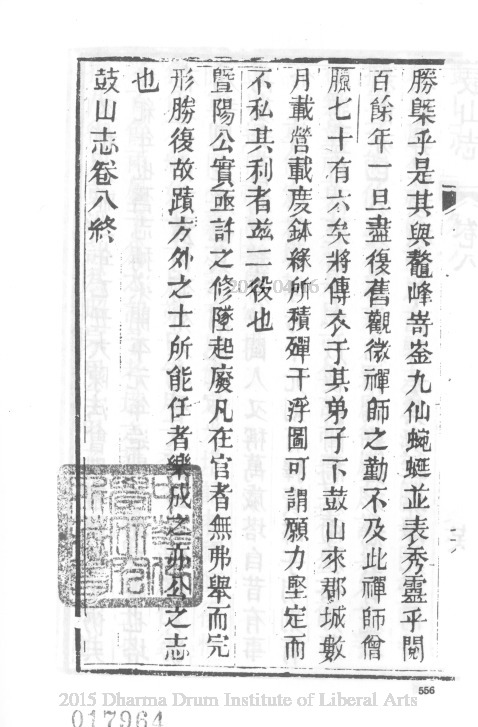 勝槩乎是其與鼇峰嵜崟九仙蜿蜒並表秀靈乎閱
百餘年一旦盡復舊觀微禪師之勤不及此禪師僧
臘七十有六矣將傳衣于其弟子下鼓山來郡城數
月載營載度鉢綠所積殫于浮圖可謂願力堅定而
不私其利者茲二役也
暨陽公實亟許之修墜起廢凡在官者無弗舉而完
形勝復故蹟方外之士所能任者樂成之亦公之志
也
鼓山志卷八終
556
2015 Dharma Drum Institute of Liberal Arts
017964